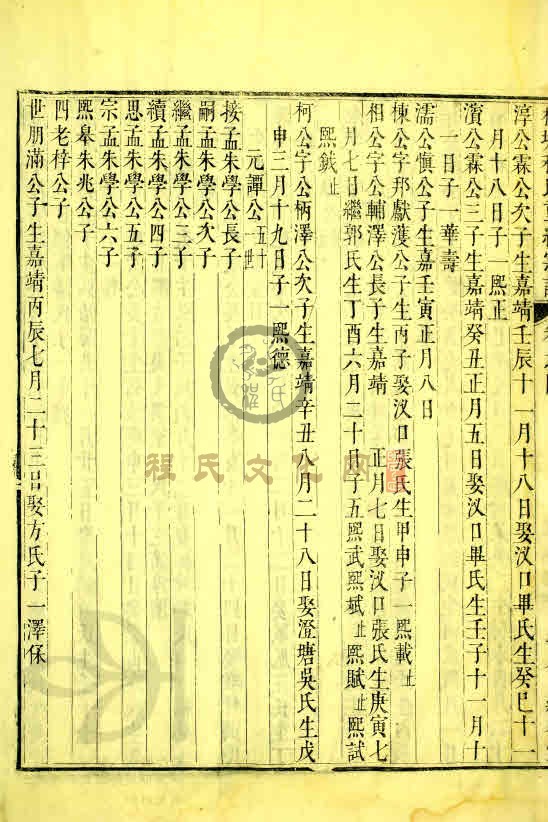 淳公霖公次子生嘉靖壬辰十一月十八日娶汊口畢氏生癸巳十一
月十八日子一熙正
濱公霖公三子生嘉靖癸丑正月五日娶汊口畢氏生壬子十一月十
一日子一華壽
濡公愼公子生嘉壬寅正月八日
棟公字邦獻濩公子生丙子娶汊口張氏生甲申子一熙載止
相公字公輔澤公長子生嘉靖 正月七日娶汊口張氏生庚寅七
月七日繼郭氏生丁酉六月二十日子五熙武熙斌止熙賦止熙試
熙鉞止
柯公字公柄澤公次子生嘉靖辛丑八月二十八日娶澄塘吳氏生戊
申三月十九日子一熙德
元譚公五十一世
接孟朱學公長子
嗣孟朱學公次子
繼孟朱學公三子
續孟朱學公四子
思孟朱學公五子
宗孟朱學公六子
熙皋朱兆公子
四老梓公子
世朋滿公子生嘉靖丙辰七月二十三日娶方氏子一澤保
程氏文化網